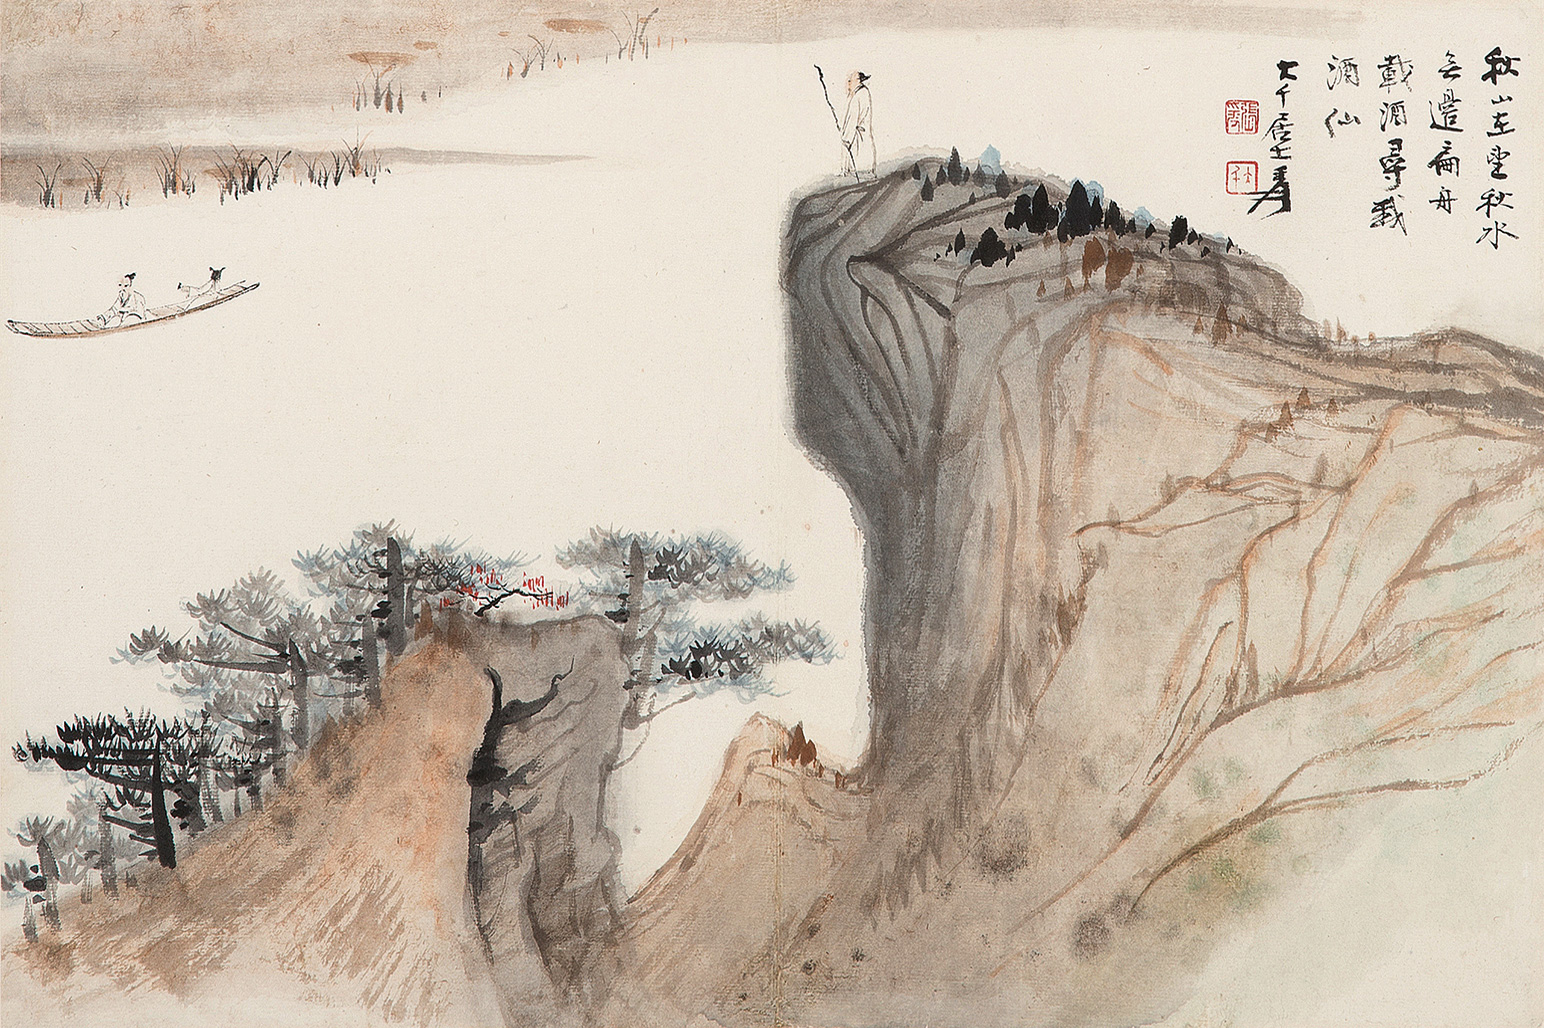 秋山在望秋水
無邊扁舟
載酒尋我
酒仙
大千居士爰
張爰